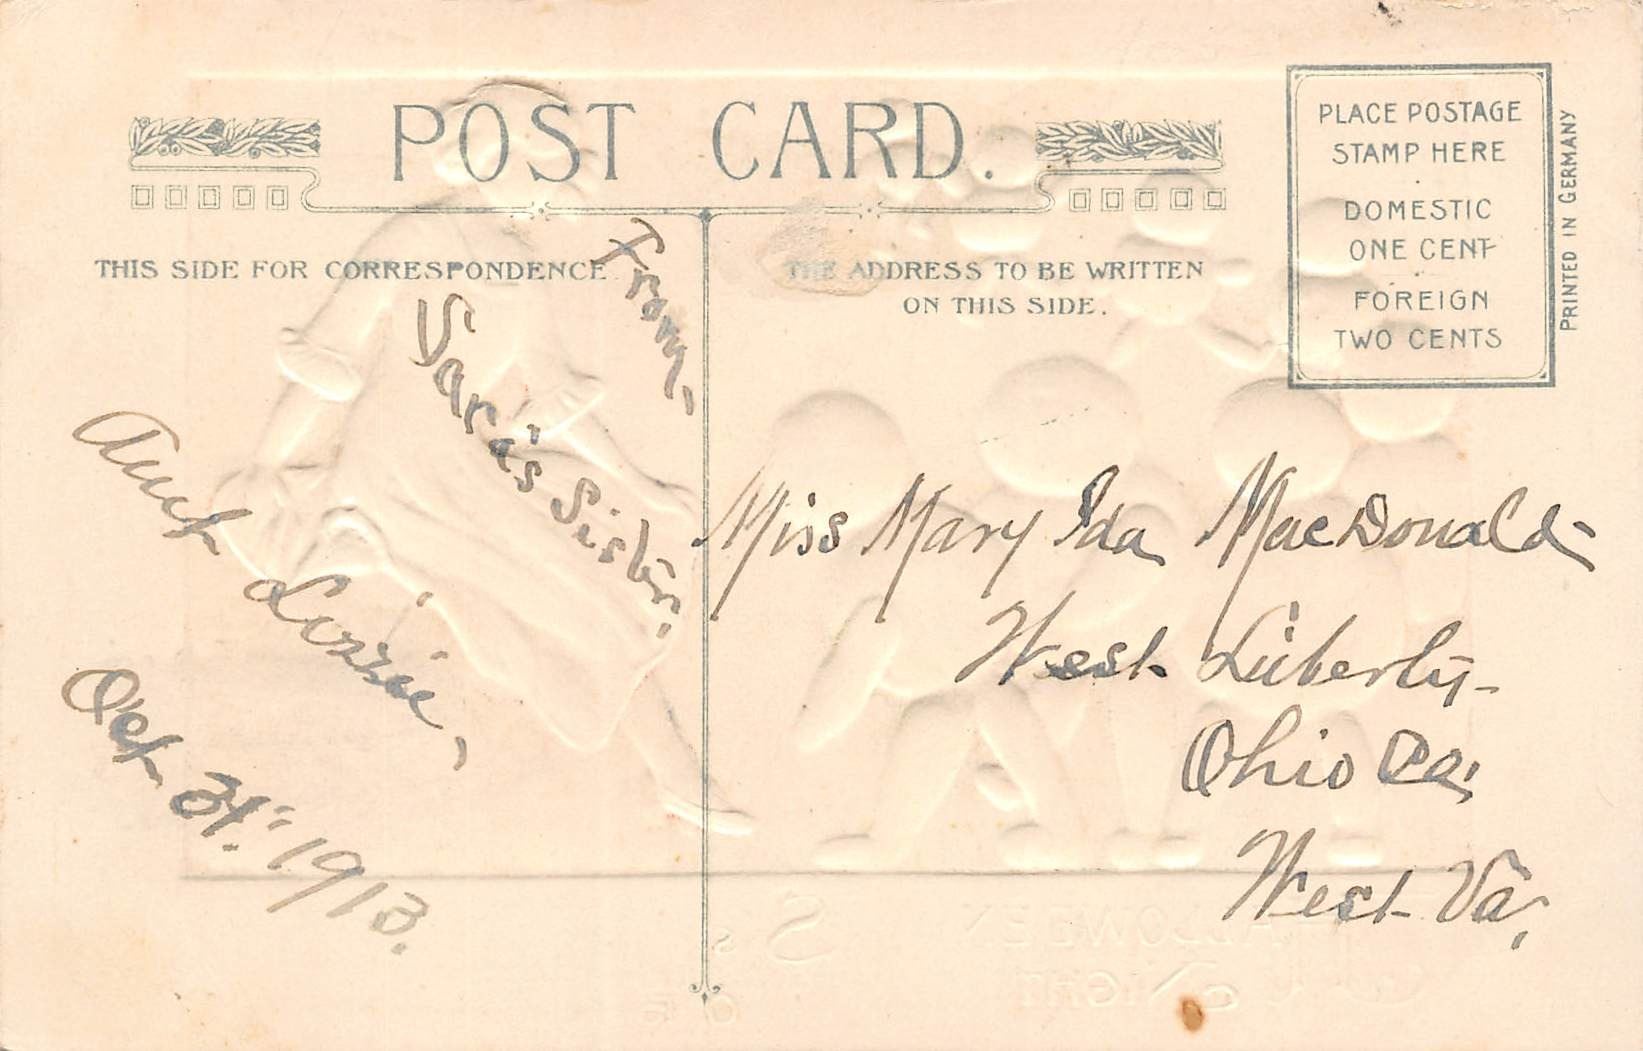 POST CARD.
THIS SIDE FOR CORRESPONDENCE.
THE ADDRESS TO BE WRITTEN
ON THIS SIDE.
PLACE POSTAGE
STAMP HERE
DOMESTIC
ONE CENT
FOREIGN
TWO CENTS
PRINTED IN GERMANY
From,
Sara's Sister.
Aunt Lizzie,
Oct 31. 1913.
Miss Mary Ida MacDonald-
West Liberty-
Ohio Co.
West Va.